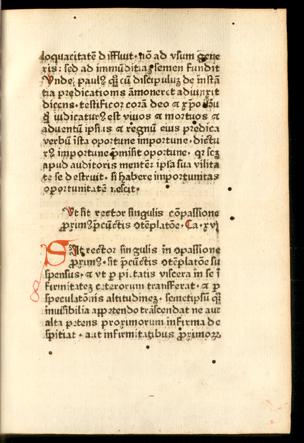 loquacitatē diffluit · nō ad vsum gene
ris : sed ad immūditiaʒ semen fundit
Vnde paulꝰ cū discipulū de instā
tia predicationis āmoneret adiunxit
dicens · testificor corā deo et xp̄o
qui iudicaturꝰ est viuos et mortuos et
aduentū ipsius et regnū eius predica
verbū īsta oportune importune · dictu
rꝰ importune premisit oportune · qꝛ scʒ
apud auditoris mentē ipsa sua vilita
te se destruit · si habere importunitas
oportunitatē nescit ·
Vt sit rector singulis cōpassione
prximꝰ p̄cūctis ɔtēplatōe · Ca · xvj
Sit rector singulis in ɔpassione
prximꝰ · sit p̄cūctis ɔtēplatōe su
spensus · et vt p pietatis viscera in se ī
firmitateʒ ceterorum transferat · et p
speculatōnis altitudineʒ · semetipsū
inuisibilia appetendo trāscendat ne aut
alta petens proximorum infirma de
spitiat · aut infirmitatibus proximoꝝ